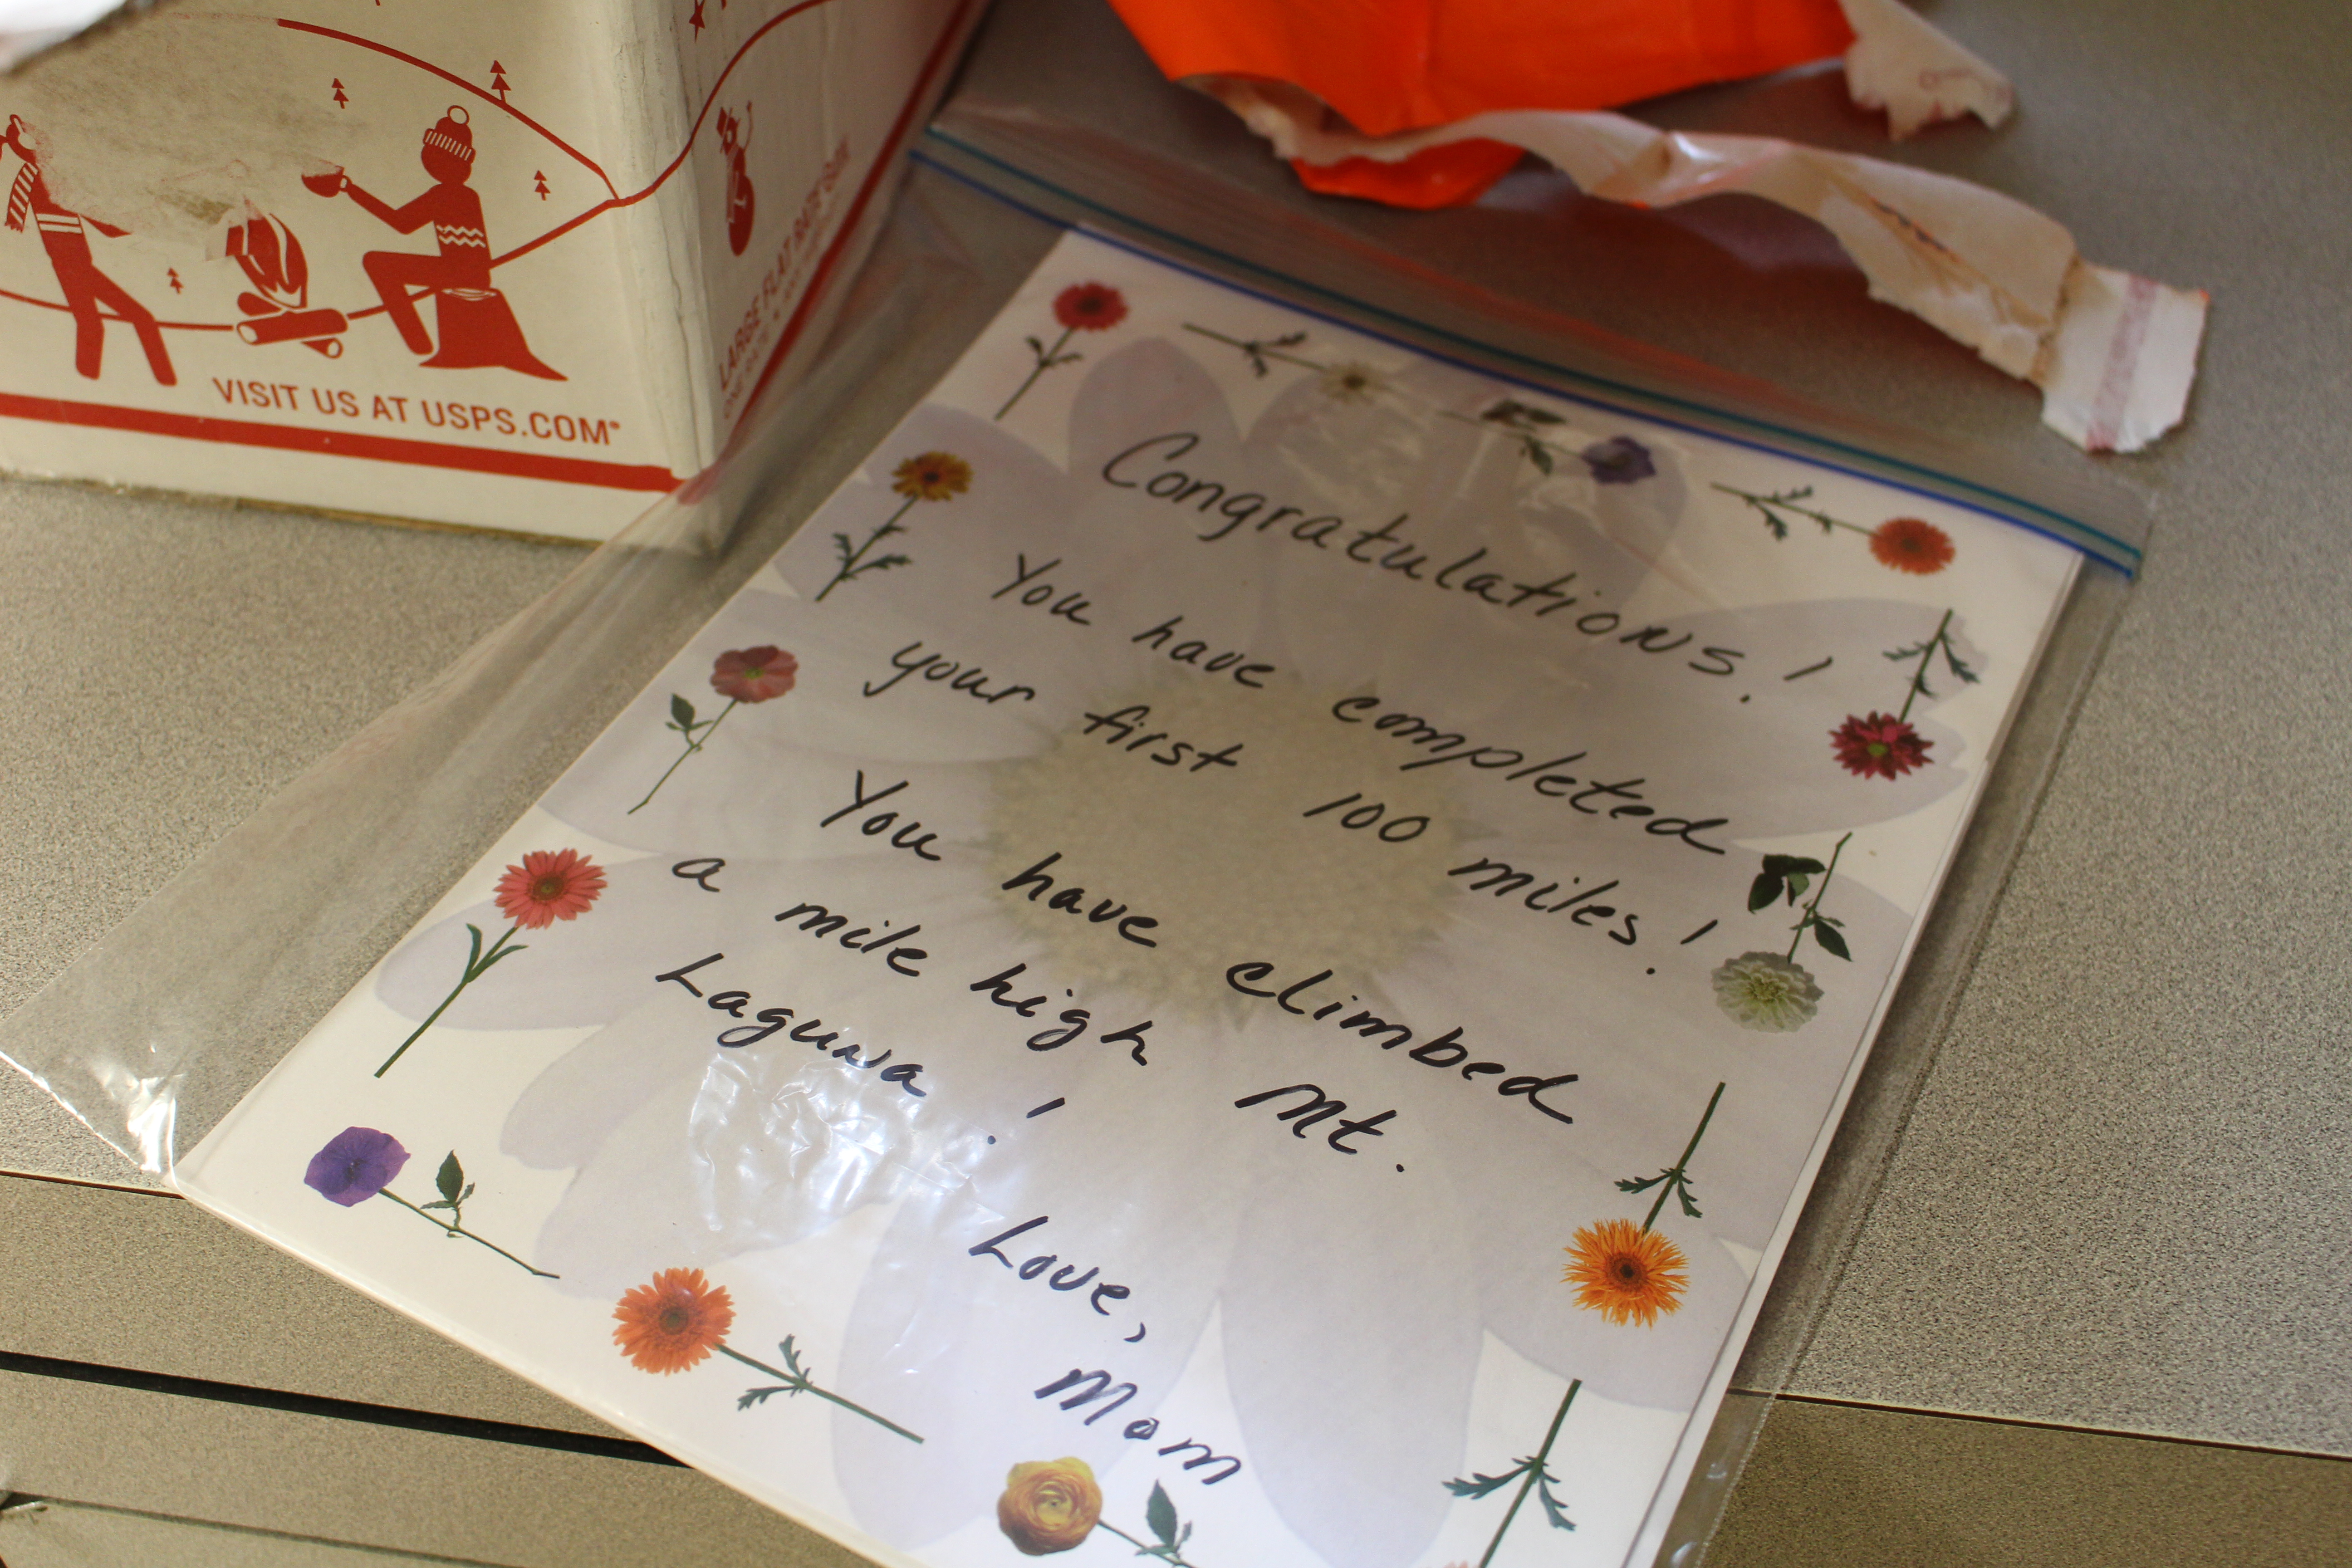 VISIT US AT USPS.COM®
LARGE FLAT RATE
Congratulations!
You have completed
your first 100 miles!
You have climbed
a mile high Mt.
Laguna!
Love,
Mom